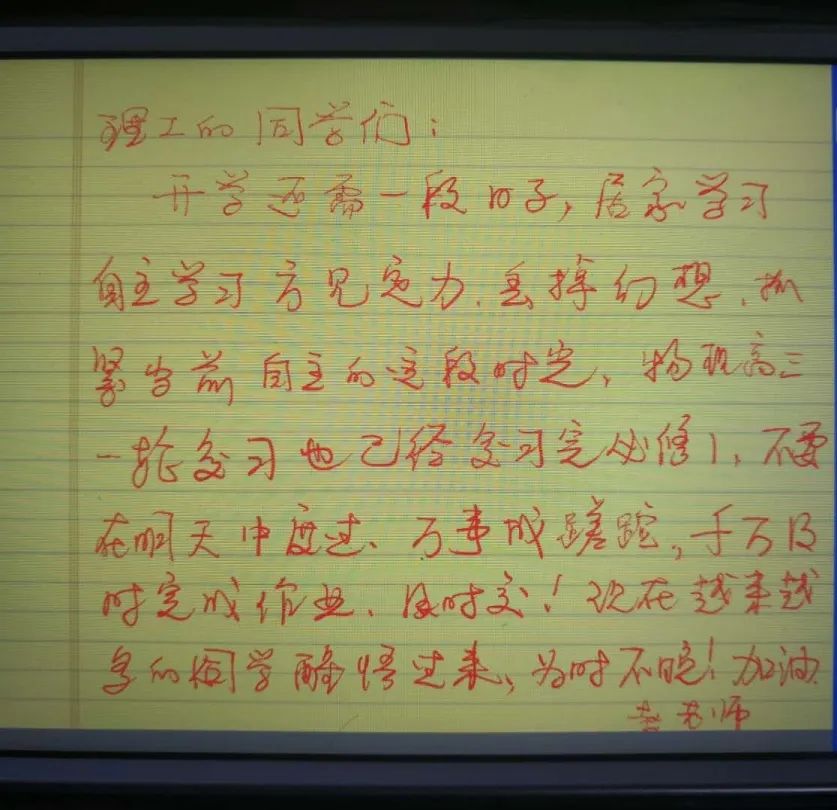 理工的同学们：
开学还需一段日子，居家学习
自主学习方见定力、丢掉幻想、抓
紧当前自主的这段时定，物理高三
一轮复习也已经复习完必修1，不要
在明天中度过、万事成蹉跎，千万及
时完成作业、及时交！现在越来越
多的同学醒悟过来、为时不晚！加油
老师